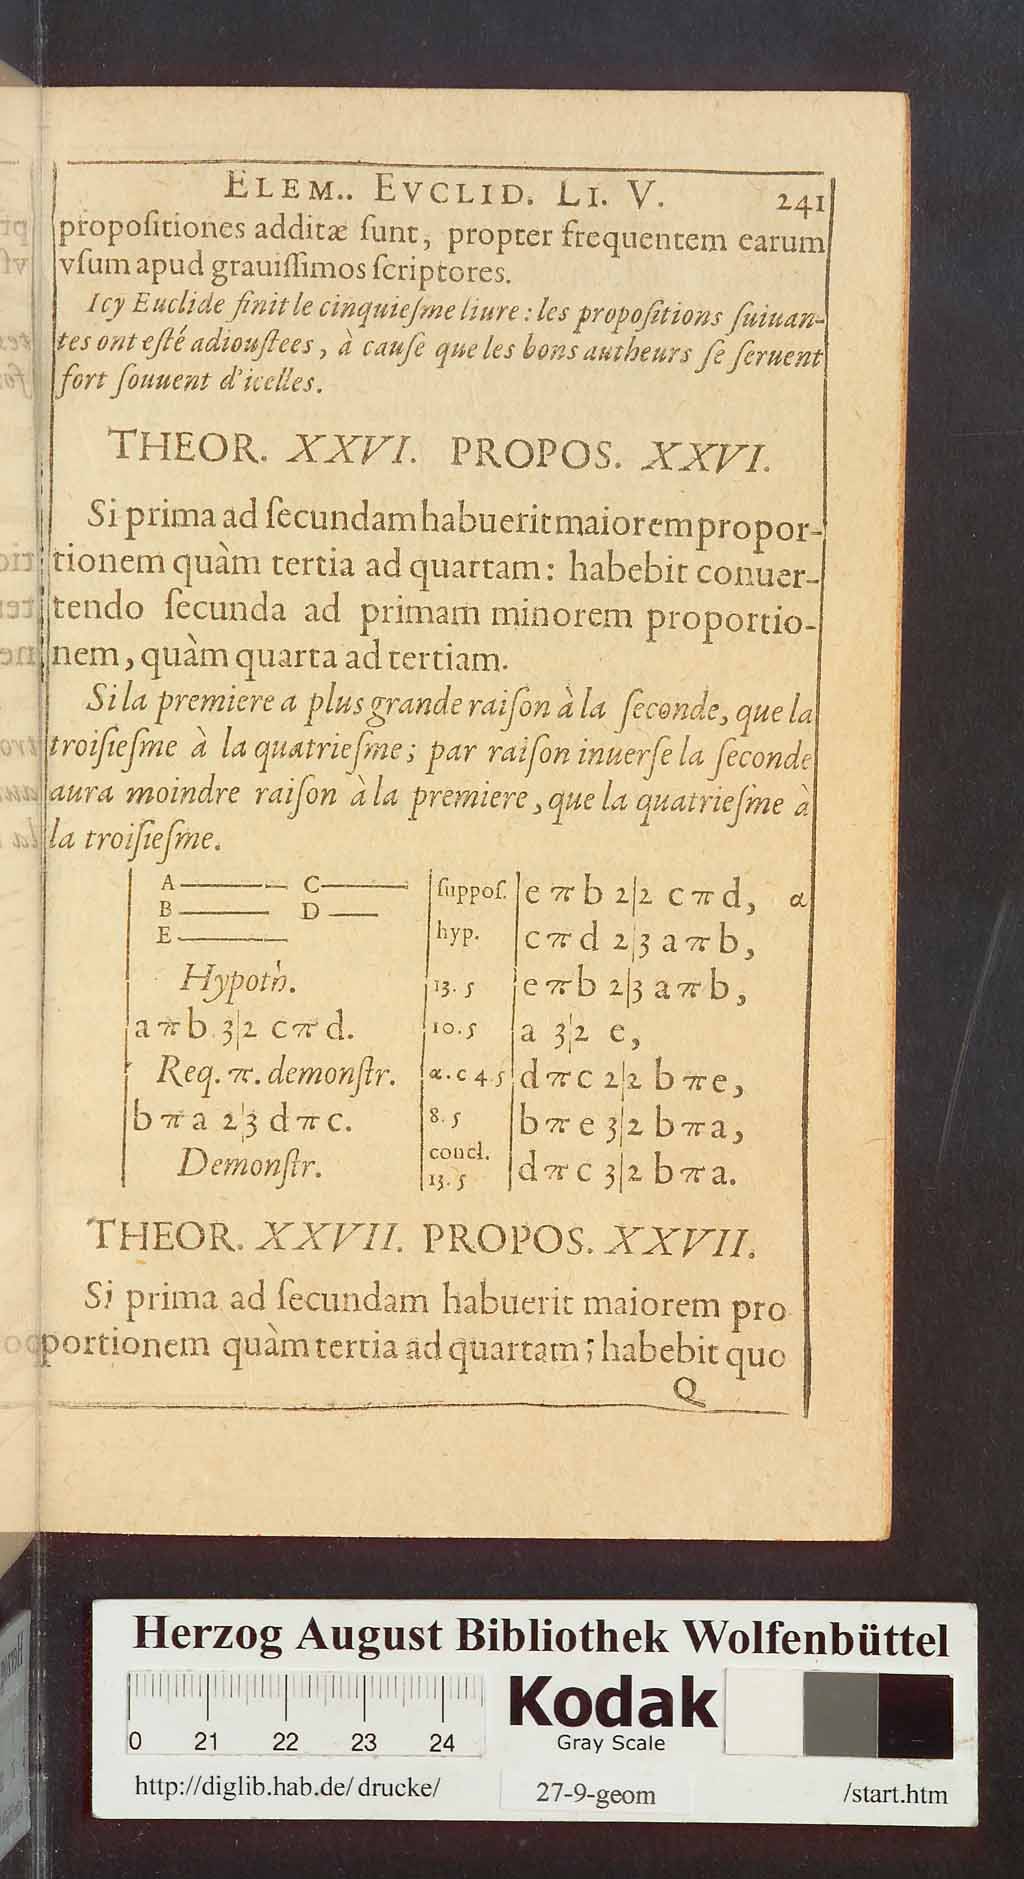 ELEM.. EVCLID. LI. V. 241
propoſitiones additæ ſunt, propter frequentem earum
vſum apud grauiſſimos ſcriptores.
Icy Euclide finit le cinquieſme liure : les propoſitions ſuiuan-
tes ont eſté adiouſtees, à cauſe que les bons autheurs ſe ſeruent
fort ſouuent d'icelles.
THEOR. XXVI. PROPOS. XXVI.
Si prima ad ſecundam habuerit maiorem propor-
tionem quàm tertia ad quartam: habebit conuer-
tendo ſecunda ad primam minorem proportio-
nem, quàm quarta ad tertiam.
Si la premiere a plus grande raiſon à la ſeconde, que la
troiſieſme à la quatrieſme; par raiſon inuerſe la ſeconde
aura moindre raiſon à la premiere, que la quatrieſme à
la troiſieſme.
A C
B D
E
Hypoth.
a π b 3|2 c π d.
Req. π. demonſtr.
b π a 2|3 d π c.
Demonſtr.
ſuppoſ. e π b 2|2 c π d, α
hyp. c π d 2|3 a π b,
13. 5 e π b 2|3 a π b,
10. 5 a 3|2 e,
α. c 4 5 d π c 2|2 b π e,
8. 5 b π e 3|2 b π a,
concl.
13. 5 d π c 3|2 b π a.
THEOR. XXVII. PROPOS. XXVII.
Si prima ad ſecundam habuerit maiorem pro
portionem quàm tertia ad quartam; habebit quo
Q
Herzog August Bibliothek Wolfenbüttel
0 21 22 23 24
Kodak
Gray Scale
http://diglib.hab.de/drucke/ 27-9-geom /start.htm